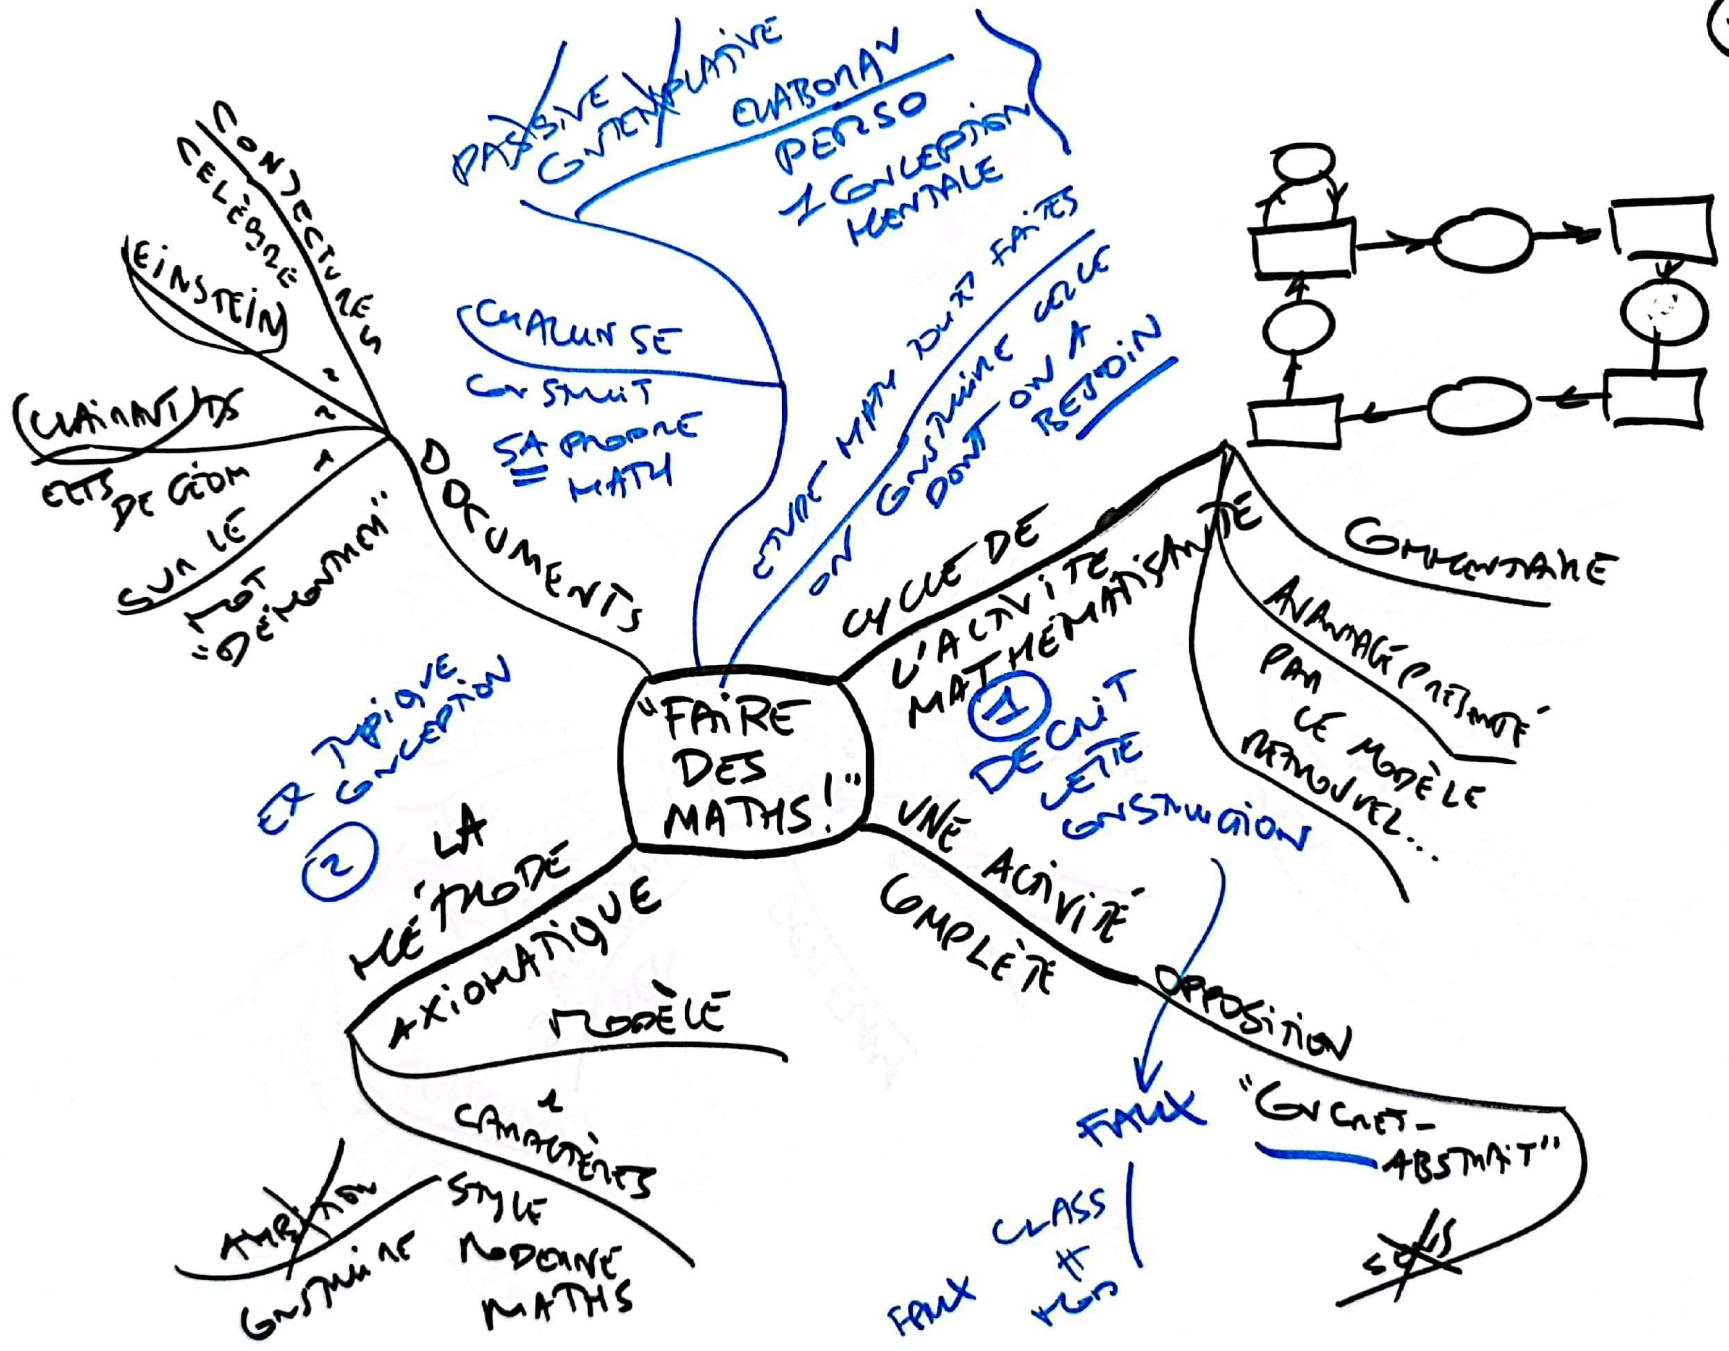 "FAIRE
DES
MATHS!"
DOCUMENTS
CONJECTURES
CELÈBRE
EINSTEIN
2
CLAIRAUT
2
DE GÉOM
1
SUR LE
MOT
"DÉMONTRER"
PASSIVE
CONTEMPLATIVE
PERSO
1 CONCEPTION
MENTALE
CHACUN SE
CONSTRUIT
SA PROPRE
MATH
MATH TOUT FAITES
ON CONSTRUIRE CELLE
DONT ON A
BESOIN
CYCLE DE
L'ACTIVITÉ
MATHÉMATISANTE
COMMENTAIRE
AVANTAGE PRÉSENTÉ
PAR
LE MODÈLE
RETROUVEL...
1
DECRIT
CETTE
CONSTRUCTION
UNE ACTIVITÉ
COMPLÈTE
OPPOSITION
"CONCRET-
ABSTRAIT"
FAUX
CLASS
FAUX
EX TYPIQUE
CONCEPTION
2
LA
MÉTHODE
AXIOMATIQUE
MODÈLE
CARACTÈRES
STYLE
MODERNE
MATHS
AMBITION
CONSTRUIRE